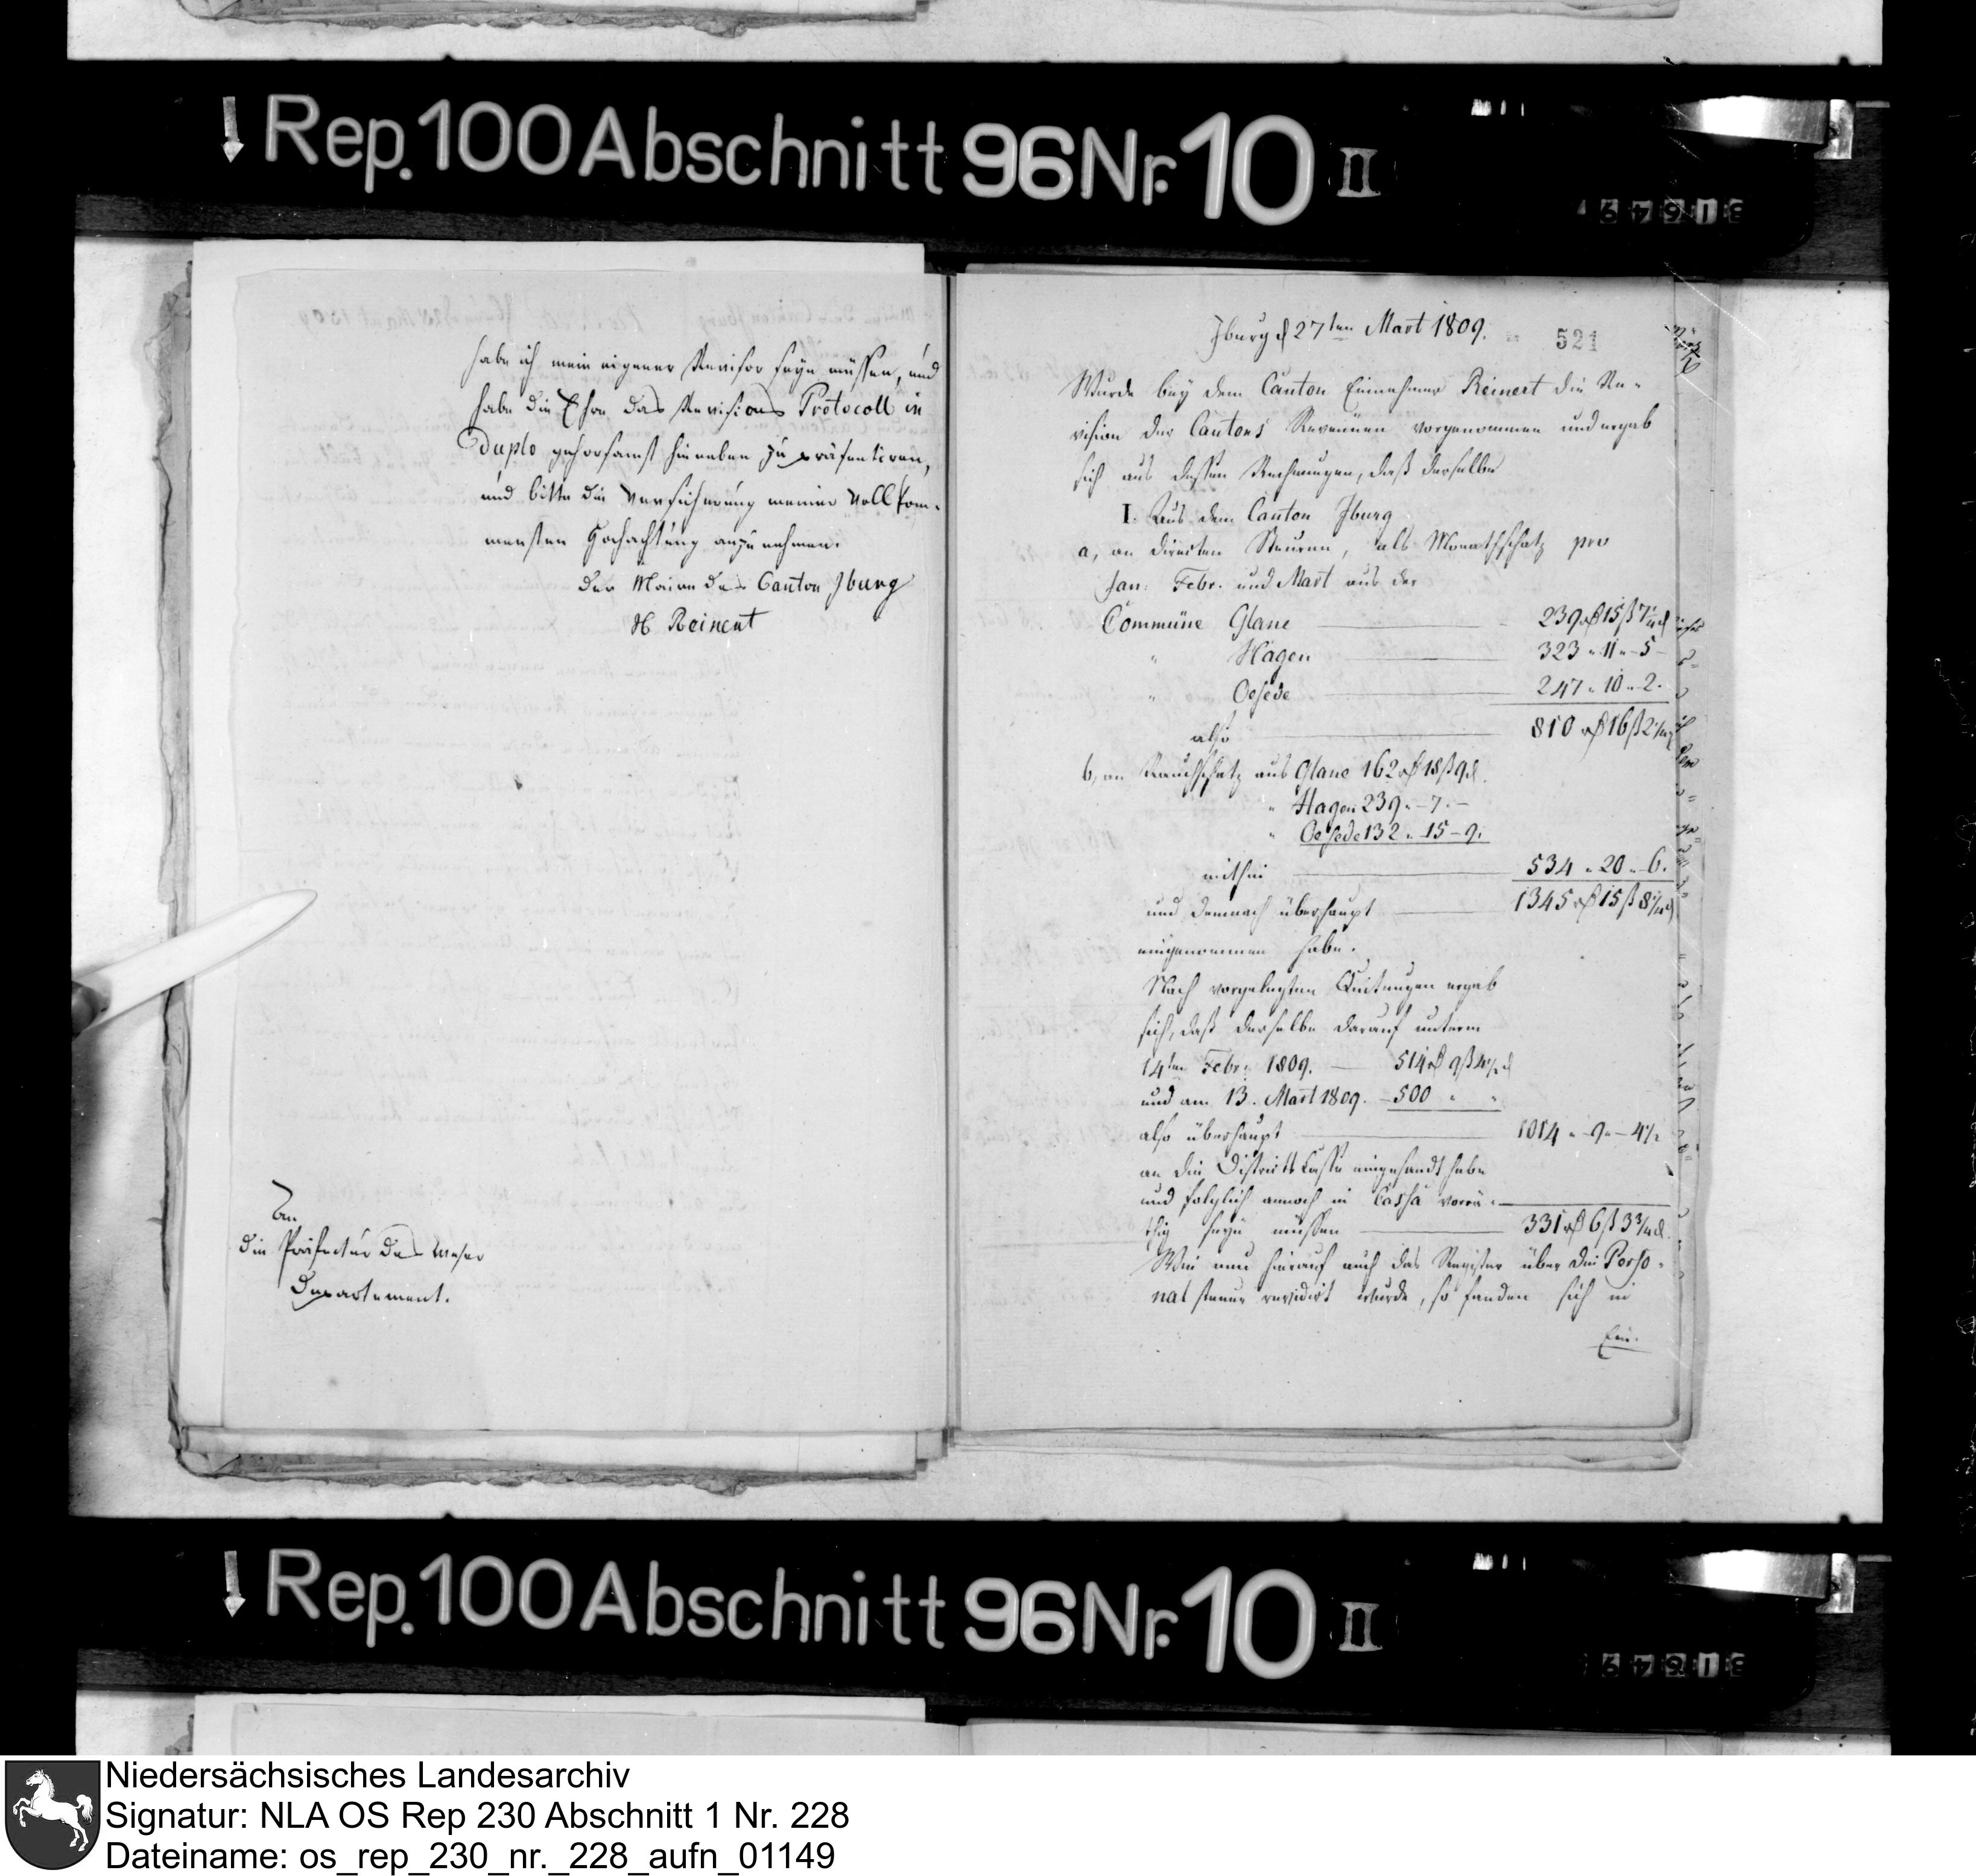 Rep. 100 Abschnitt 96 Nr. 10 II
habe ich mein eigener Revisor seyn müssen, und
habe die Ehre das Revisions Protocoll in
Duplo gehorsamst hieneben zu präsentiren,
und bitte die Versicherung meiner vollkom-
mensten Hochachtung anzunehmen.
Der Maire des Canton Jburg
Reinert
An
die Präfectur des Weser
Departement.
Jburg d 27ten Mart 1809.
521
Wurde bey dem Canton Einnehmer Reinert die Re-
vision der Cantons Revenüen vorgenommen und ergab
sich aus dessen Rechnungen, daß derselbe
I. Aus dem Canton Jburg
a, an directen Steuren, als Monathschatz pro
Jan: Febr. und Mart aus der
Commüne Glane 239 rℓ 15 ß 7
" Hagen 323 " 11 " 5
" Oesede 247 " 10 " 2.
also 810 rℓ 16 ß 2
b, an Rauchschatz aus Glane 162 rℓ 18 ß 9 d.
" Hagen 239 " 7 " –
" Oesede 132 " 15 – 9.
mithin 534 " 20 " 6.
und demnach überhaupt 1345 rℓ 15 ß 8
eingenommen habe.
Nach vorgelegten Quitungen ergab
sich, daß derselbe darauf unterm
14ten Febr: 1809. 514 rℓ 9 ß 4½ d
und am 13. Mart 1809. 500 " "
also überhaupt 1014 " 9 " 4½
an die Districts Casse eingesandt habe
und folglich annoch in Cassa vorrä-
thig seyn müssen 331 rℓ 6 ß 3¾ d.
Wie nun hierauf auch das Register über die Perso-
nal steuer revidirt wurde, so fanden sich in
Ein.
Rep. 100 Abschnitt 96 Nr. 10 II
Niedersächsisches Landesarchiv
Signatur: NLA OS Rep 230 Abschnitt 1 Nr. 228
Dateiname: os_rep_230_nr._228_aufn_01149